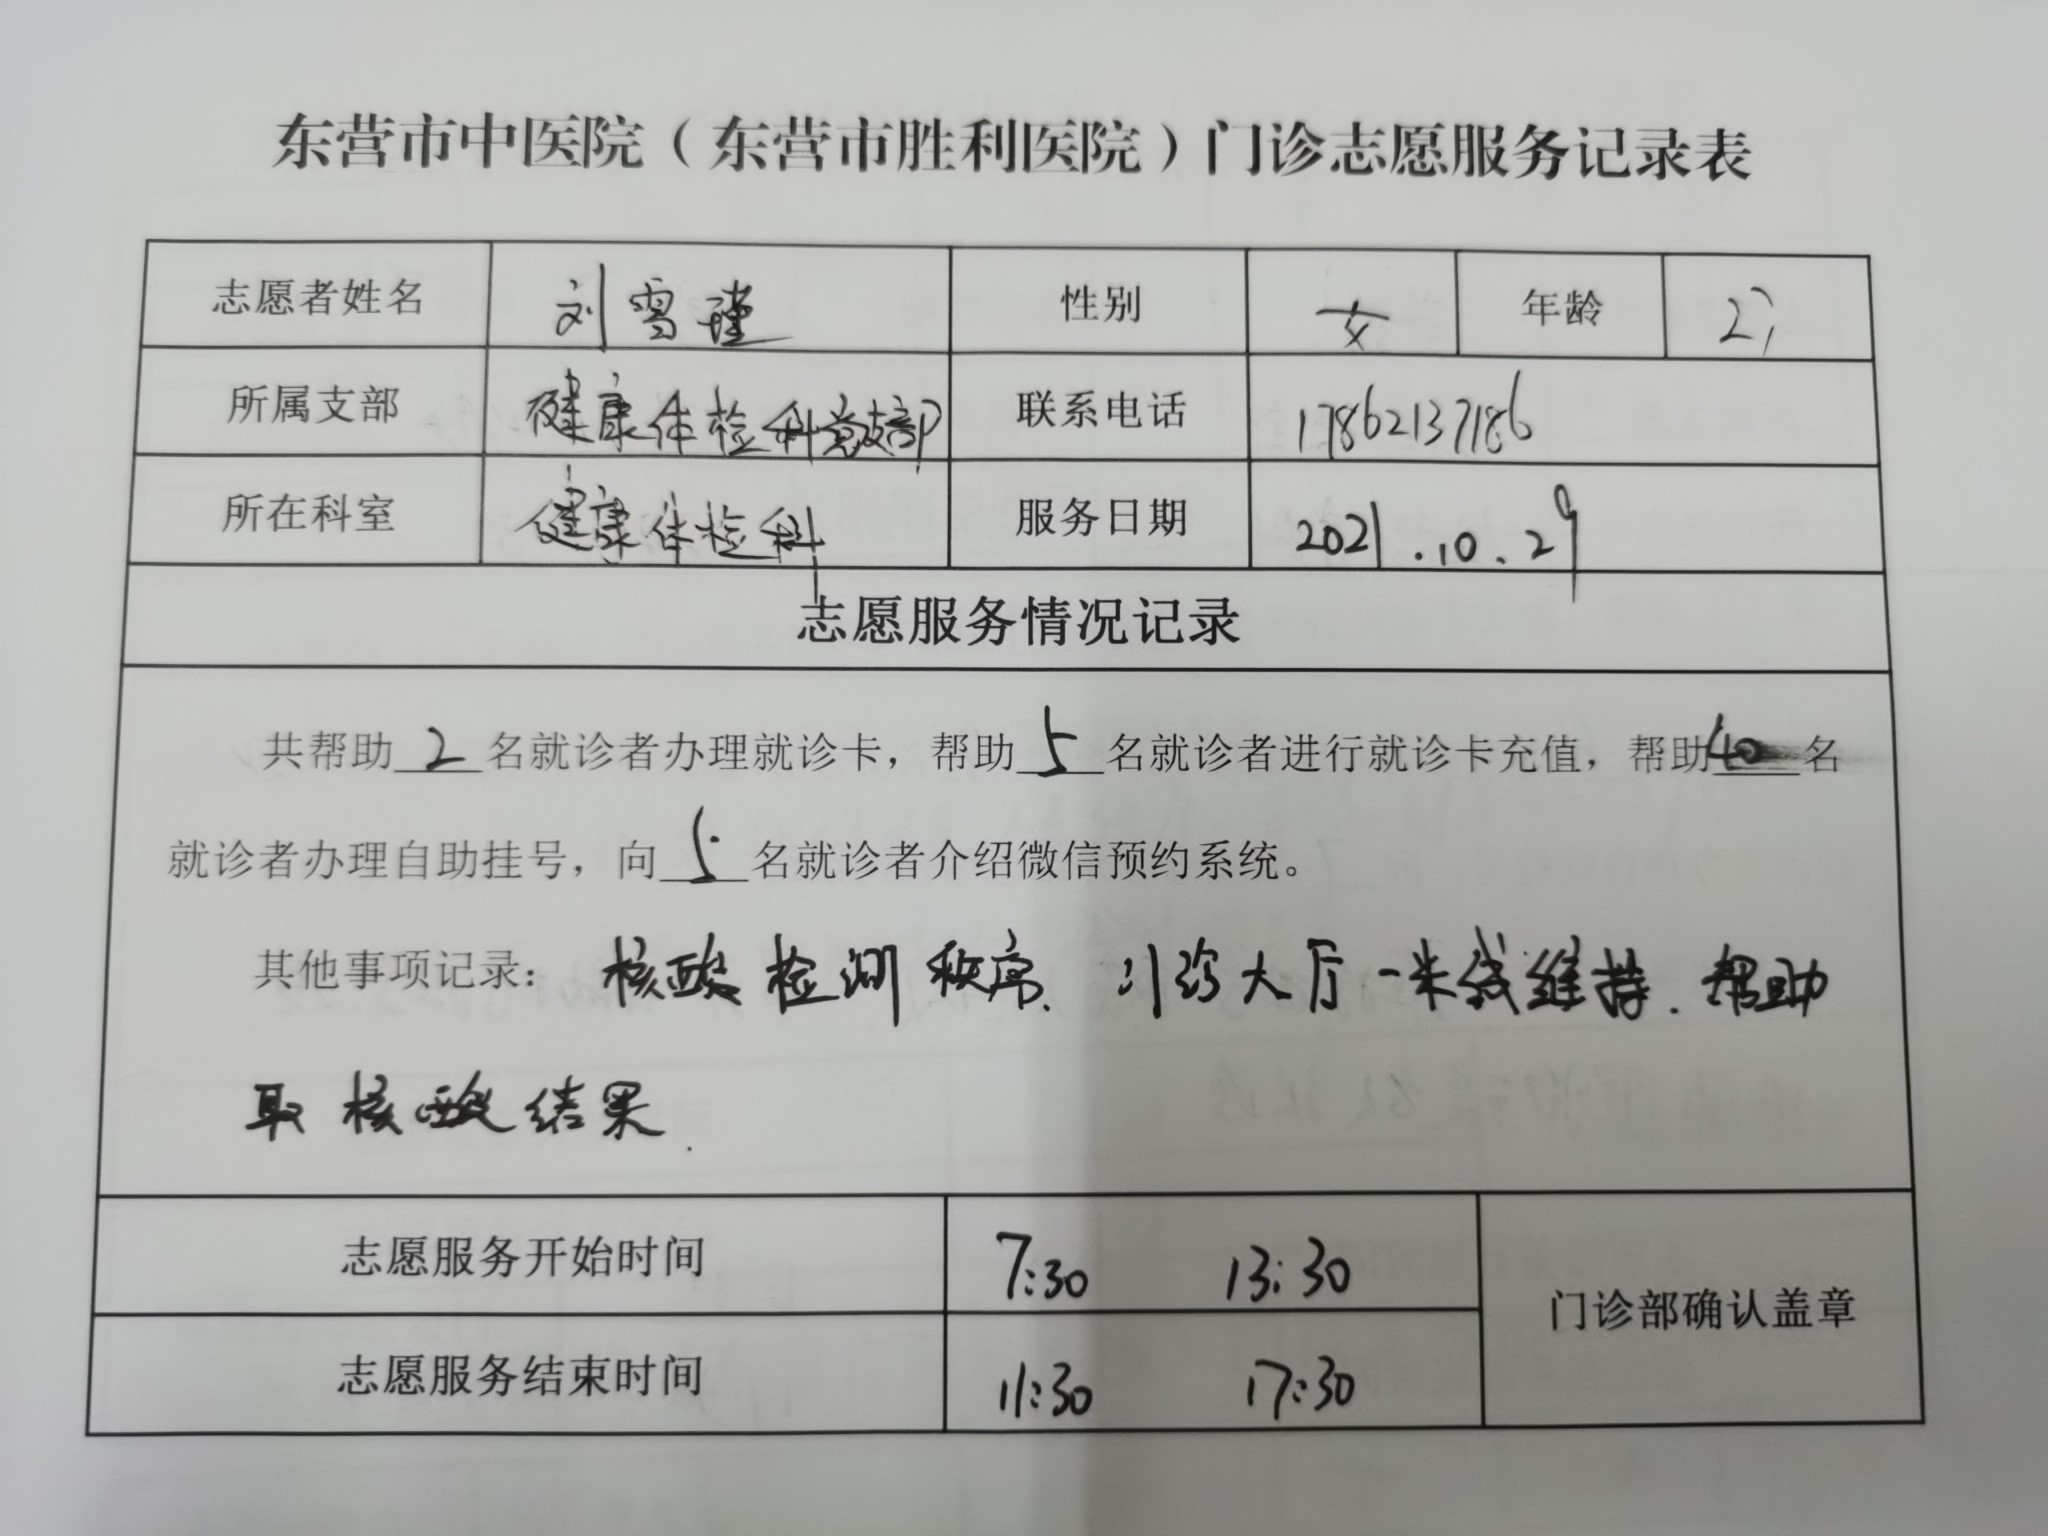 东营市中医院（东营市胜利医院）门诊志愿服务记录表
志愿者姓名 刘雪瑾 性别 女 年龄 27
所属支部 健康体检科党支部 联系电话 17862137186
所在科室 健康体检科 服务日期 2021.10.29
志愿服务情况记录
共帮助 2 名就诊者办理就诊卡，帮助 5 名就诊者进行就诊卡充值，帮助 40 名
就诊者办理自助挂号，向 5 名就诊者介绍微信预约系统。
其他事项记录：核酸检测秩序、引诊大厅一米线维持、帮助
取核酸结果.
志愿服务开始时间 7:30 13:30
门诊部确认盖章
志愿服务结束时间 11:30 17:30